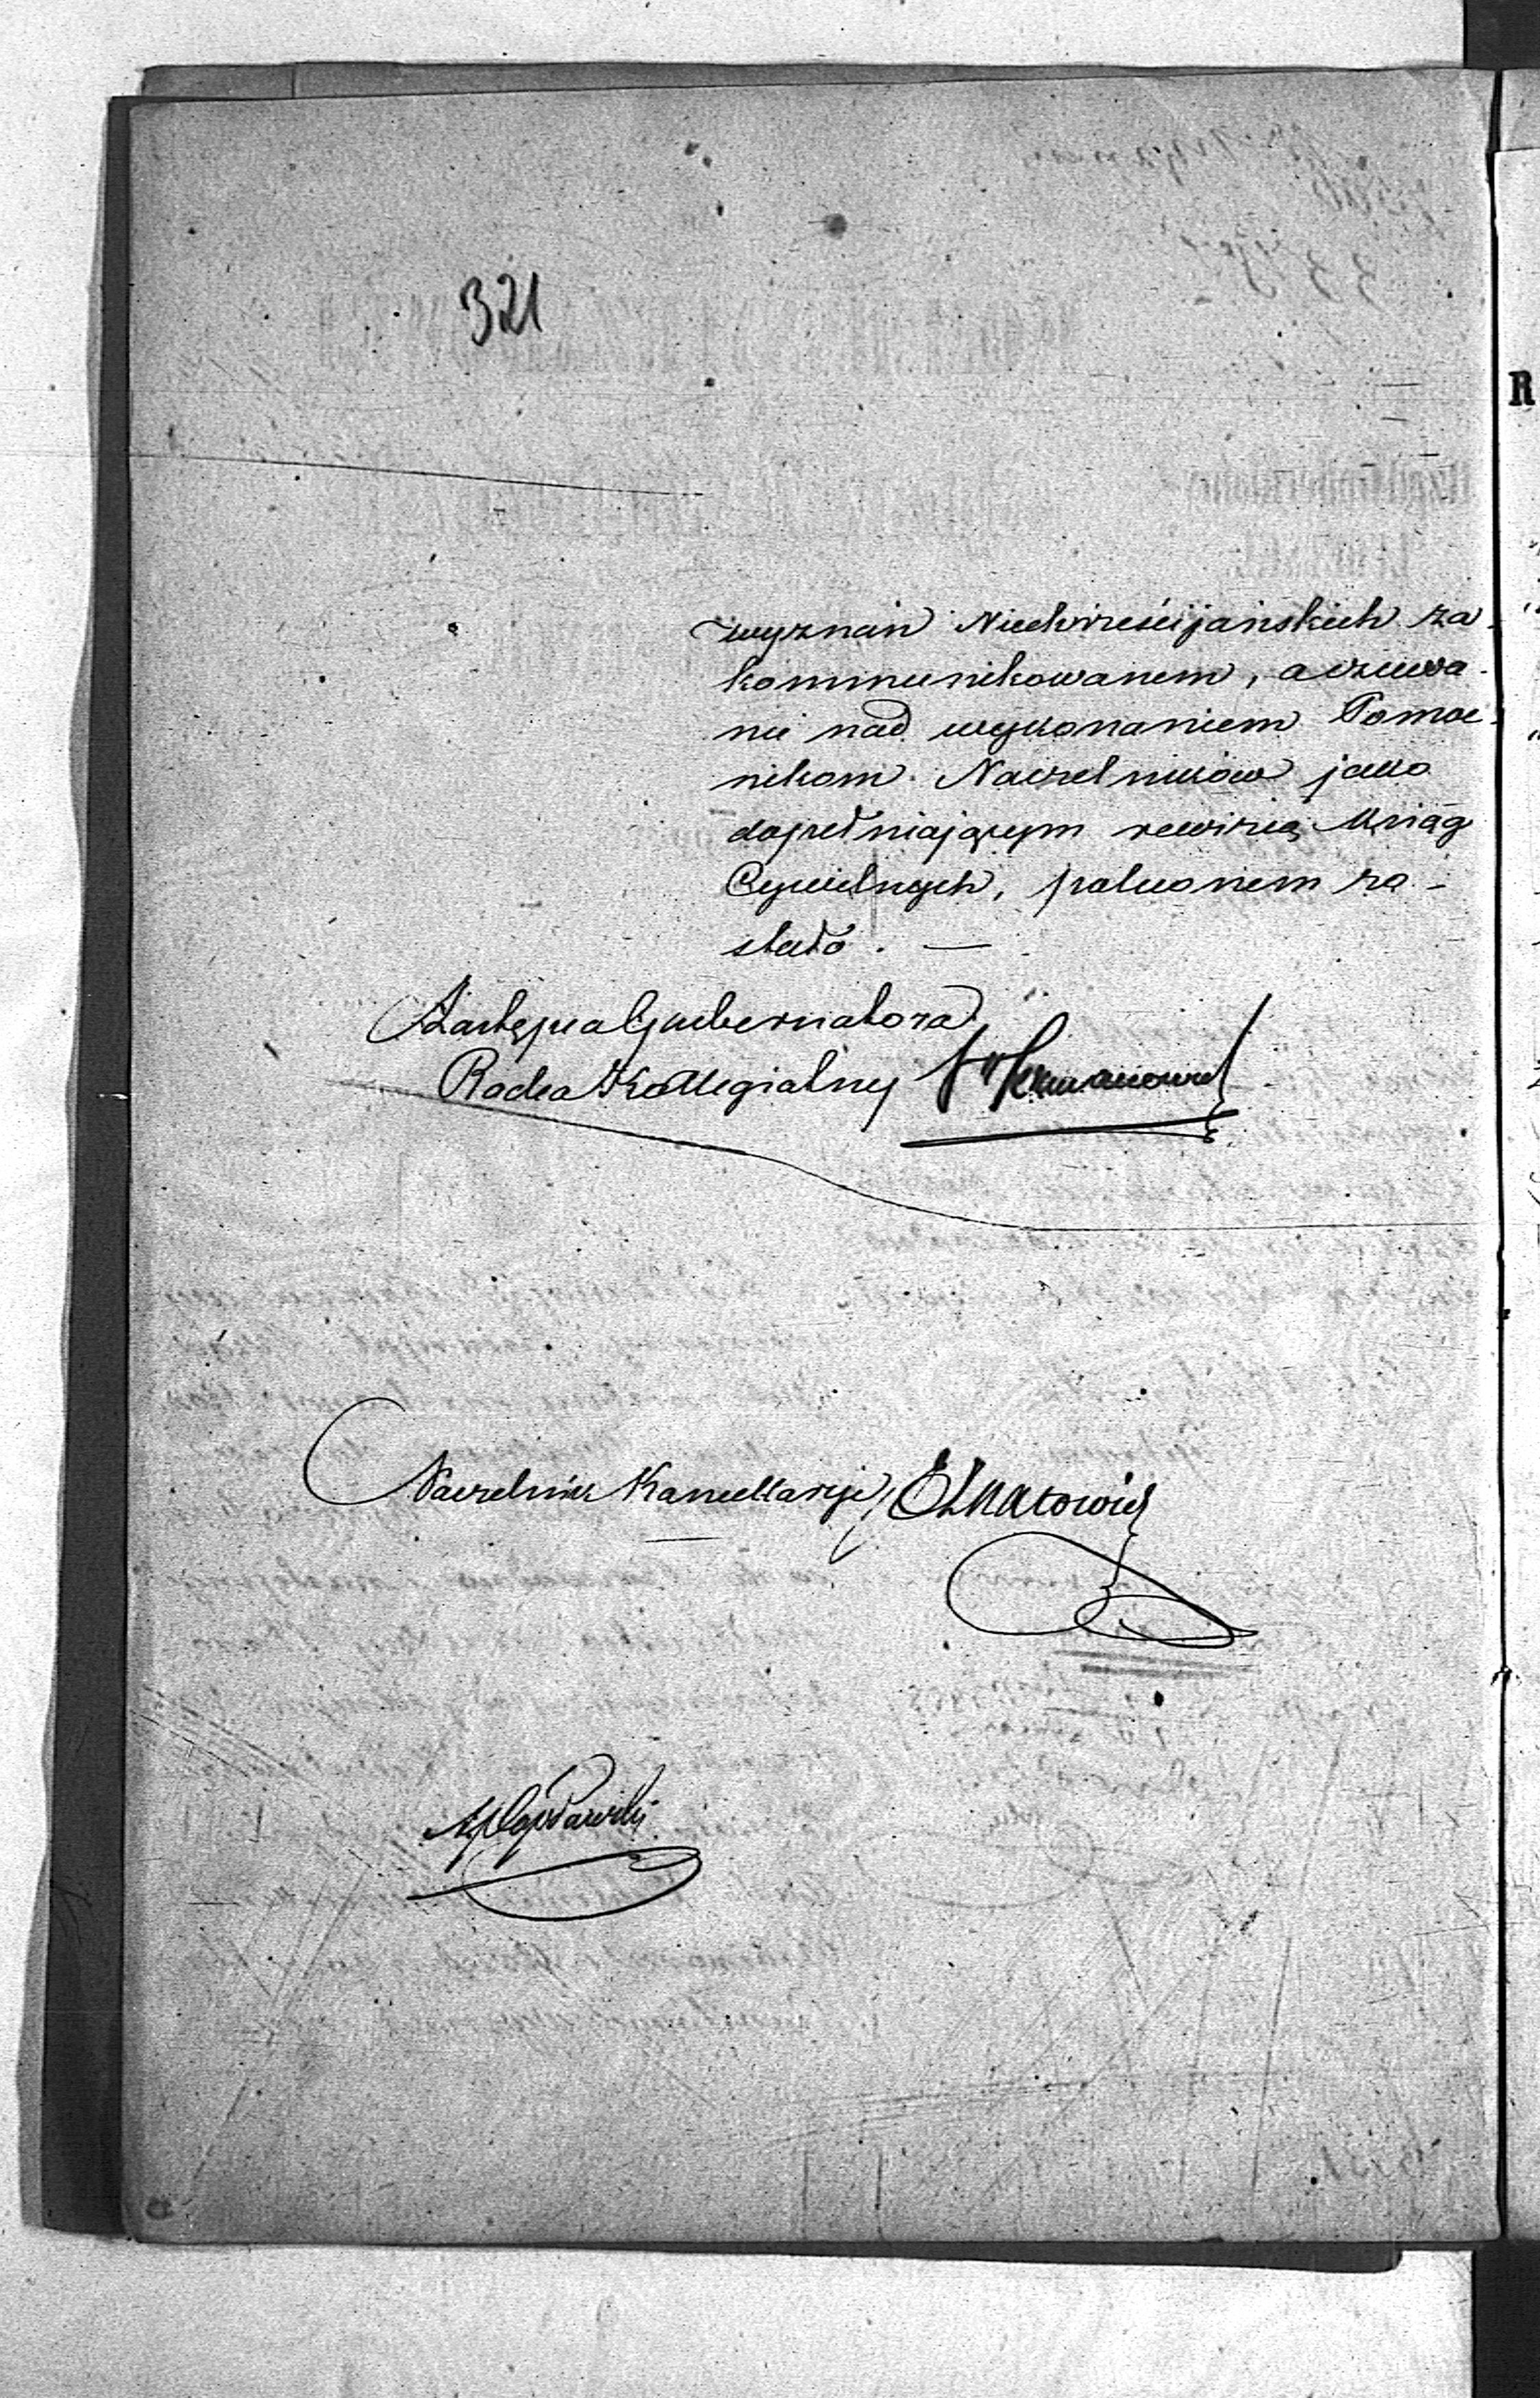 321
wyznań Niechrześcijańskich za-
kommunikowanem, a czuwa-
nie nad wykonaniem Pomoc-
nikom Naczelników jako
dopełniającym rewizią Xsiąg
Cywilnych, poleconem zo-
stało. —
Zastępca Gubernatora
Radca Kollegialny
Naczelnik Kancellaryi
R